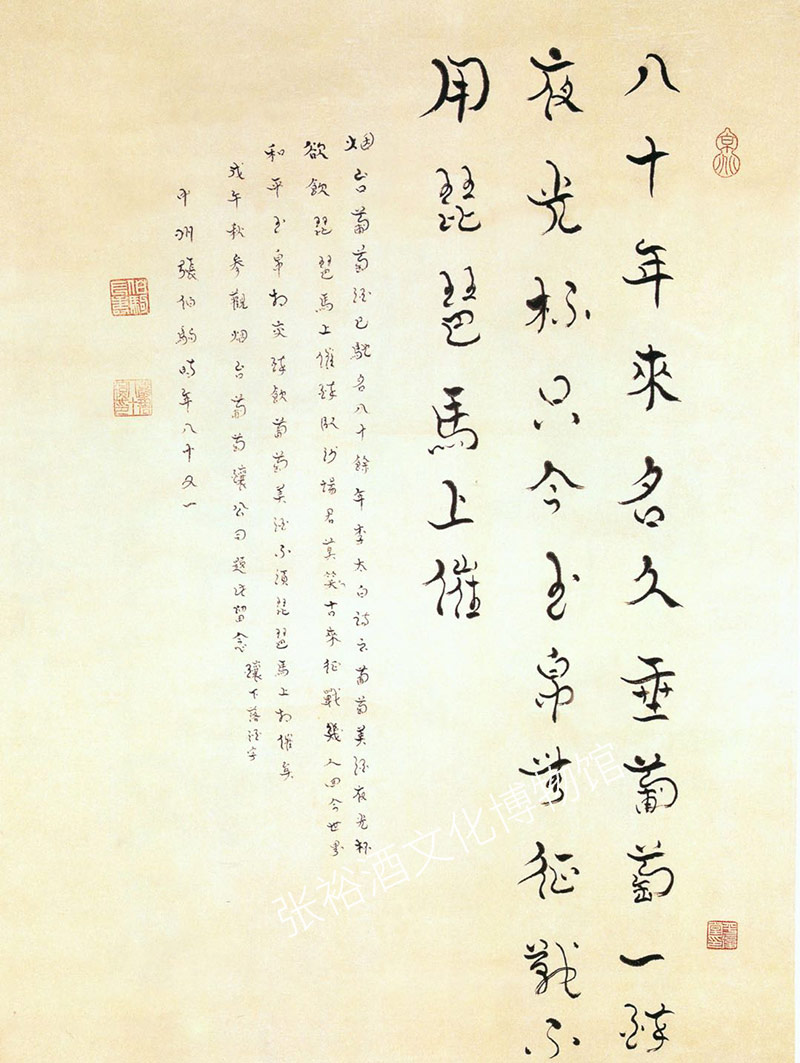 八十年來名久垂葡萄一醉
夜光杯只今玉帛無征戰不
用琵琶馬上催
烟台葡萄酒已馳名八十餘年李太白詩云葡萄美酒夜光杯
欲飲琵琶馬上催醉臥沙場君莫笑古來征戰幾人回今世界
和平玉帛相交暢飲葡萄美酒不須琵琶馬上相催矣
戊午秋參觀烟台葡萄釀公司題此留念
釀下落酒字
中州張伯駒時年八十又一
张裕酒文化博物馆